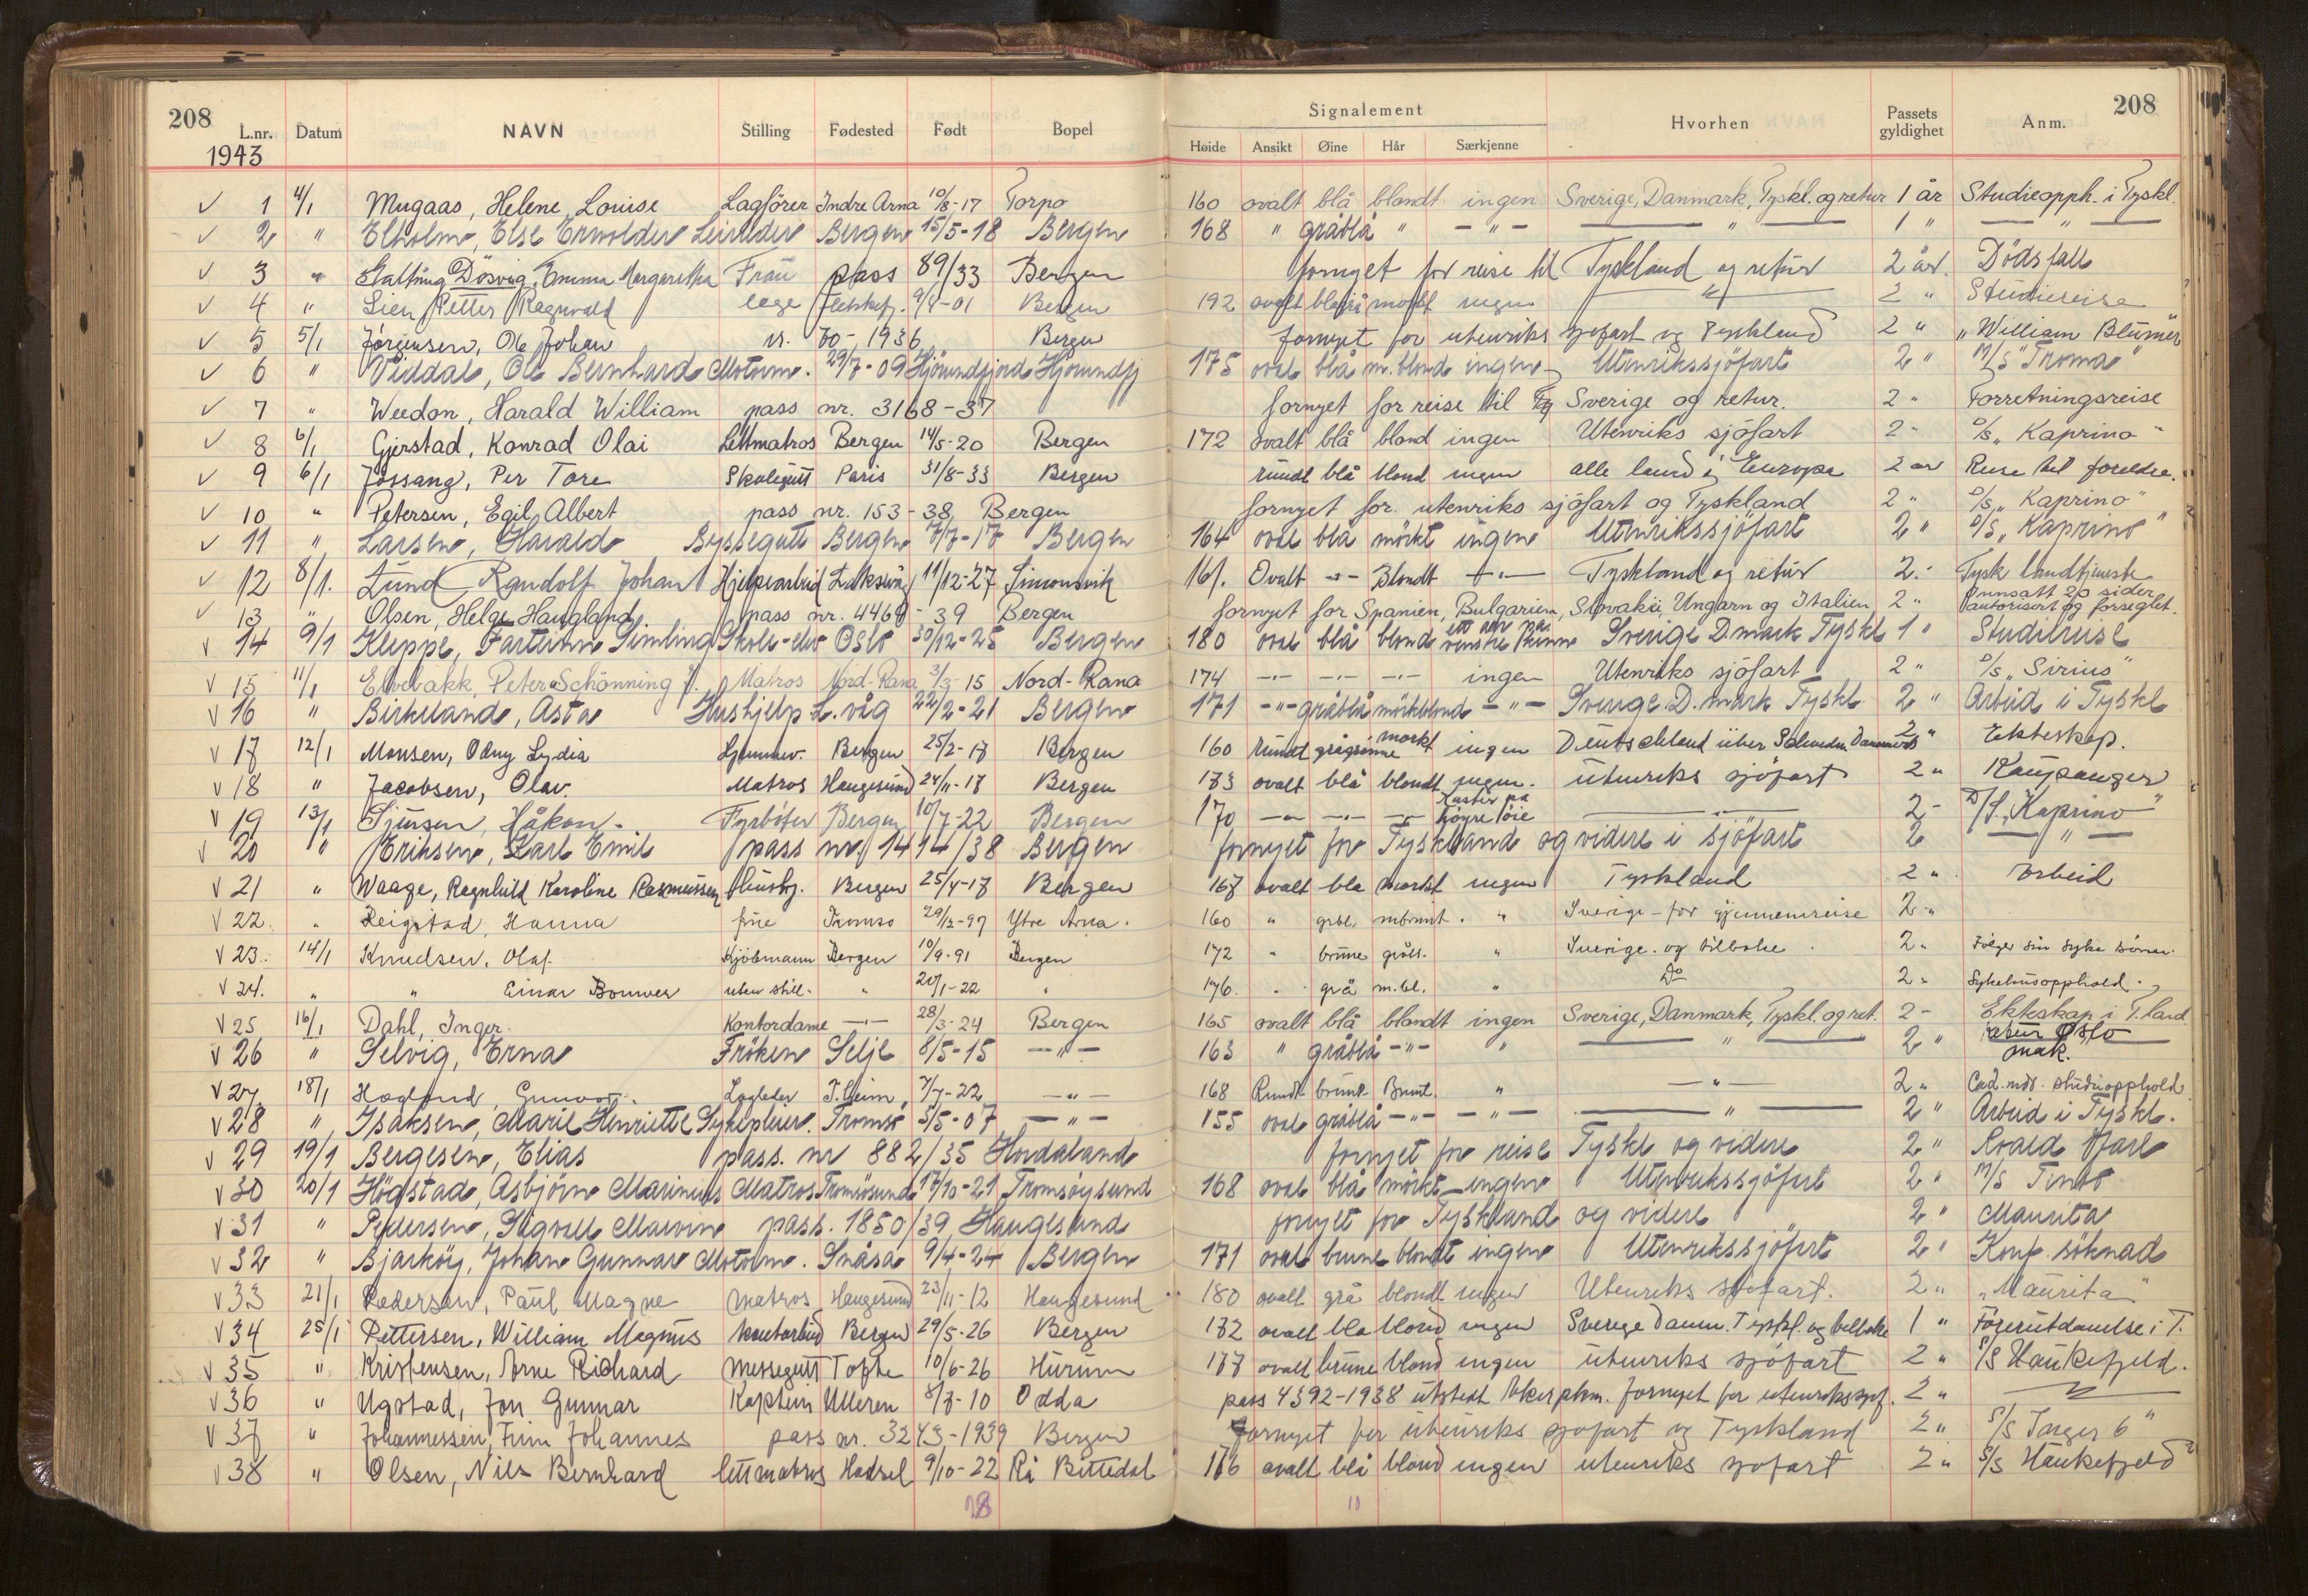 208 Signalement 208
L.nr. Datum NAVN Stilling Fødested Født Bopel Høide Ansikt Øine Hår Særkjenne Hvorhen Passets gyldighet Anm.
1943
√ 1 4/1 Mugaas, Helene Louise Lagförer Indre Arna 10/8-17 Torpo 160 ovalt blå blondt ingen Sverige, Danmark, Tyskl. og retur 1 år Studieopph. i Tyskl.
√ 2 " Elholm, Else Bergen 15/5-18 Bergen 168 " gråblå " - " - — " — 1 " — " —
√ 3 " Galtung Døsvig, Emma Margaretha Frau pass 89/33 Bergen fornyet for reise til Tyskland og retur 2 år. Dödsfall
√ 4 " Lien Petter Ragnvald lege 9/4-01 Bergen 192 ovalt blågrå mörkt ingen — " — 2 " Studiereise
√ 5 5/1 Jörgensen, Ole Johan nr. 70-1936 Bergen fornyet for utenriks sjofart og Tyskland 2 " "William Blumer"
√ 6 " Viddal, Ole Bernhard Motorm. 29/7-09 Hjörundfjord Hjörundfj 175 oval blå m.blond ingen Utenrikssjöfart 2 " M/S "Troma"
√ 7 " Weedon, Harald William pass nr. 3168-37 fornyet for reise til Sverige og retur. 2 " Forretningsreise
√ 8 6/1 Gjerstad, Konrad Olai Lettmatros Bergen 14/5-20 Bergen 172 ovalt blå blond ingen Utenriks sjöfart 2 - D/S "Kaprino"
√ 9 6/1 Jössang, Per Tore Skolegutt Paris 31/8-33 Bergen rundt blå blond ingen alle land i Europa 2 år Reise til foreldre.
√ 10 " Petersen, Egil Albert pass nr. 153-38 Bergen fornyet for utenriks sjöfart og Tyskland 2 " D/S "Kaprino"
√ 11 " Larsen, Harald Byssegutt Bergen 7/7-17 Bergen 164 oval blå mörkt ingen Utenrikssjöfart 2 " D/S "Kaprino"
√ 12 8/1. Lund Randolf Johan Hjelpearbeid Laksevåg 11/12-27 Simonsvik 161. Ovalt -"- Blondt -"- Tyskland og retur 2 - Tysk landtjeneste
√ 13 " Olsen, Helge Haugland pass nr. 4468-39 Bergen fornyet for Spanien, Bulgarien, Slovakei, Ungarn og Italien 2 " Innsatt 20 sider autorisert og forseglet.
√ 14 9/1 Kleppe, Fartein Skole-elev Oslo 30/12-25 Bergen 180 oval blå blond ett arr på venstre kinn Sverige D.mark Tyskl 1 " Studiereise
√ 15 11/1 Elvebakk, Peter Schönning Matros Nord-Rana 3/3-15 Nord-Rana 174 -"- -"- -"- ingen Utenriks sjöfart 2 " D/S "Sirius"
√ 16 " Birkeland, Asta Hushjelp L.våg 22/2-21 Bergen 171 -"- gråblå mörkblond - " - Sverige D.mark Tyskl 2 " Arbeid i Tyskl
√ 17 12/1 Monsen, Odny Lydia Hjemmev. Bergen 25/2-18 Bergen 160 rundt grågrönne mørkt ingen Deutschland über Schweden Danmark 2 " Ekteskap.
√ 18 " Jacobsen, Olav. Matros Haugesund 24/11-18 Bergen 173 ovalt blå blondt ingen. utenriks sjöfart 2 " Kaupanger
√ 19 13/1 Sjursen, Håkon. Fyrböter Bergen 10/7-22 Bergen 170 -"- -"- -"- Kaster på höyre öie — " — 2 - D/S. "Kaprino"
√ 20 " Eriksen, Karl Emil pass nr. 1414/38 Bergen fornyet for Tyskland og videre i sjöfart 2 — " —
√ 21 " Waage, Ragnhild Karoline Rasmussen Husbj. Bergen 25/4-18 Bergen 167 ovalt blå mørkt ingen Tyskland 2 " arbeid
√ 22. " Reigstad, Hanna frue Tromsö 29/12-97 Ytre Arna. 160 " gråbl. mbrunt. " Sverige - for gjennemreise 2 -"
√ 23. 14/1 Knudsen, Olaf. Kjöbmann Bergen 10/9-91 Bergen 172 " brune grått. " Sverige. og tilbake. 2 " Fölger sin syke sönn.
√ 24. " " Einar Bouwer uten still. " 20/1-22 " 176. " grå m.bl. " Do 2 " Sykehusopphold.
√ 25 16/1 Dahl, Inger. Kontordame -"- 28/3-24 Bergen 165 ovalt blå blondt ingen Sverige, Danmark, Tyskl. og ret. 2 - Ekteskap i T.land
√ 26 " Selvig, Erna Fröken Selje 8/5-15 - " - 163 " gråblå -"- " — " — 2 " retur Oslo mak.
√ 27. 18/1 Hoglund, Gunvor. Lagleder T.heim, 7/7-22 - " - 168 Rundt brune Brunt. " — " — 2 " studieopphold
√ 28 " Isaksen, Marie Henriette Sykepleier. Tromsö 5/5-07 - " - 155 oval gråblå -"- - " - — " — 2 " Arbeid i Tyskl.
√ 29 19/1 Bergesen, Elias pass. nr 882/35 Hordaland fornyet for reise Tyskl og videre 2 " Roald Jarl
√ 30 20/1 Högstad, Asbjörn Marinius Matros Tromösund 17/10-21 Tromsöysund 168 oval blå mörkt ingen Utenrikssjöfart 2 " M/S Tento
√ 31 " Pedersen, Sigvall Marvin pass. 1850/39 Haugesund fornyet for Tyskland og videre 2 " Maurita
√ 32 " Bjarköy, Johan Gunnar Motorm. Snåsa 9/4-24 Bergen 171 oval brune blondt ingen Utenrikssjöfart 2 " Konf. söknad
√ 33 21/1 Pedersen, Paul Magne matros Haugesund 23/11-12 Haugesund 180 ovalt grå blondt ingen Utenriks sjøfart. 2 " "Maurita"
√ 34 25/1 Pettersen, William Magnus kontorbud Bergen 29/5-26 Bergen 172 ovalt blå blond ingen Sverige Danm. Tyskl. og tilbake 1 " Förerutdannelse i T.
√ 35 " Kristensen, Arne Richard messegutt Tofte 10/6-26 Hurum 177 ovalt brune blond ingen utenriks sjöfart 2 " S/S Haukefjeld.
√ 36 " Ugstad, Jon Gunnar Kaptein Ulleren 8/7-10 Odda pass 4392-1938 utstedt Aker pkm. fornyet for utenrikssjøf. 2 " — " —
√ 37 " Johannessen, Finn Johannes pass nr. 3243-1939 Bergen fornyet for utenriks sjofart og Tyskland 2 " S/S "Inger 6"
√ 38 " Olsen, Nils Bernhard lettmatros Hadsel 9/10-22 176 ovalt blå blond ingen utenriks sjofart 2 " S/S Haukefjeld"